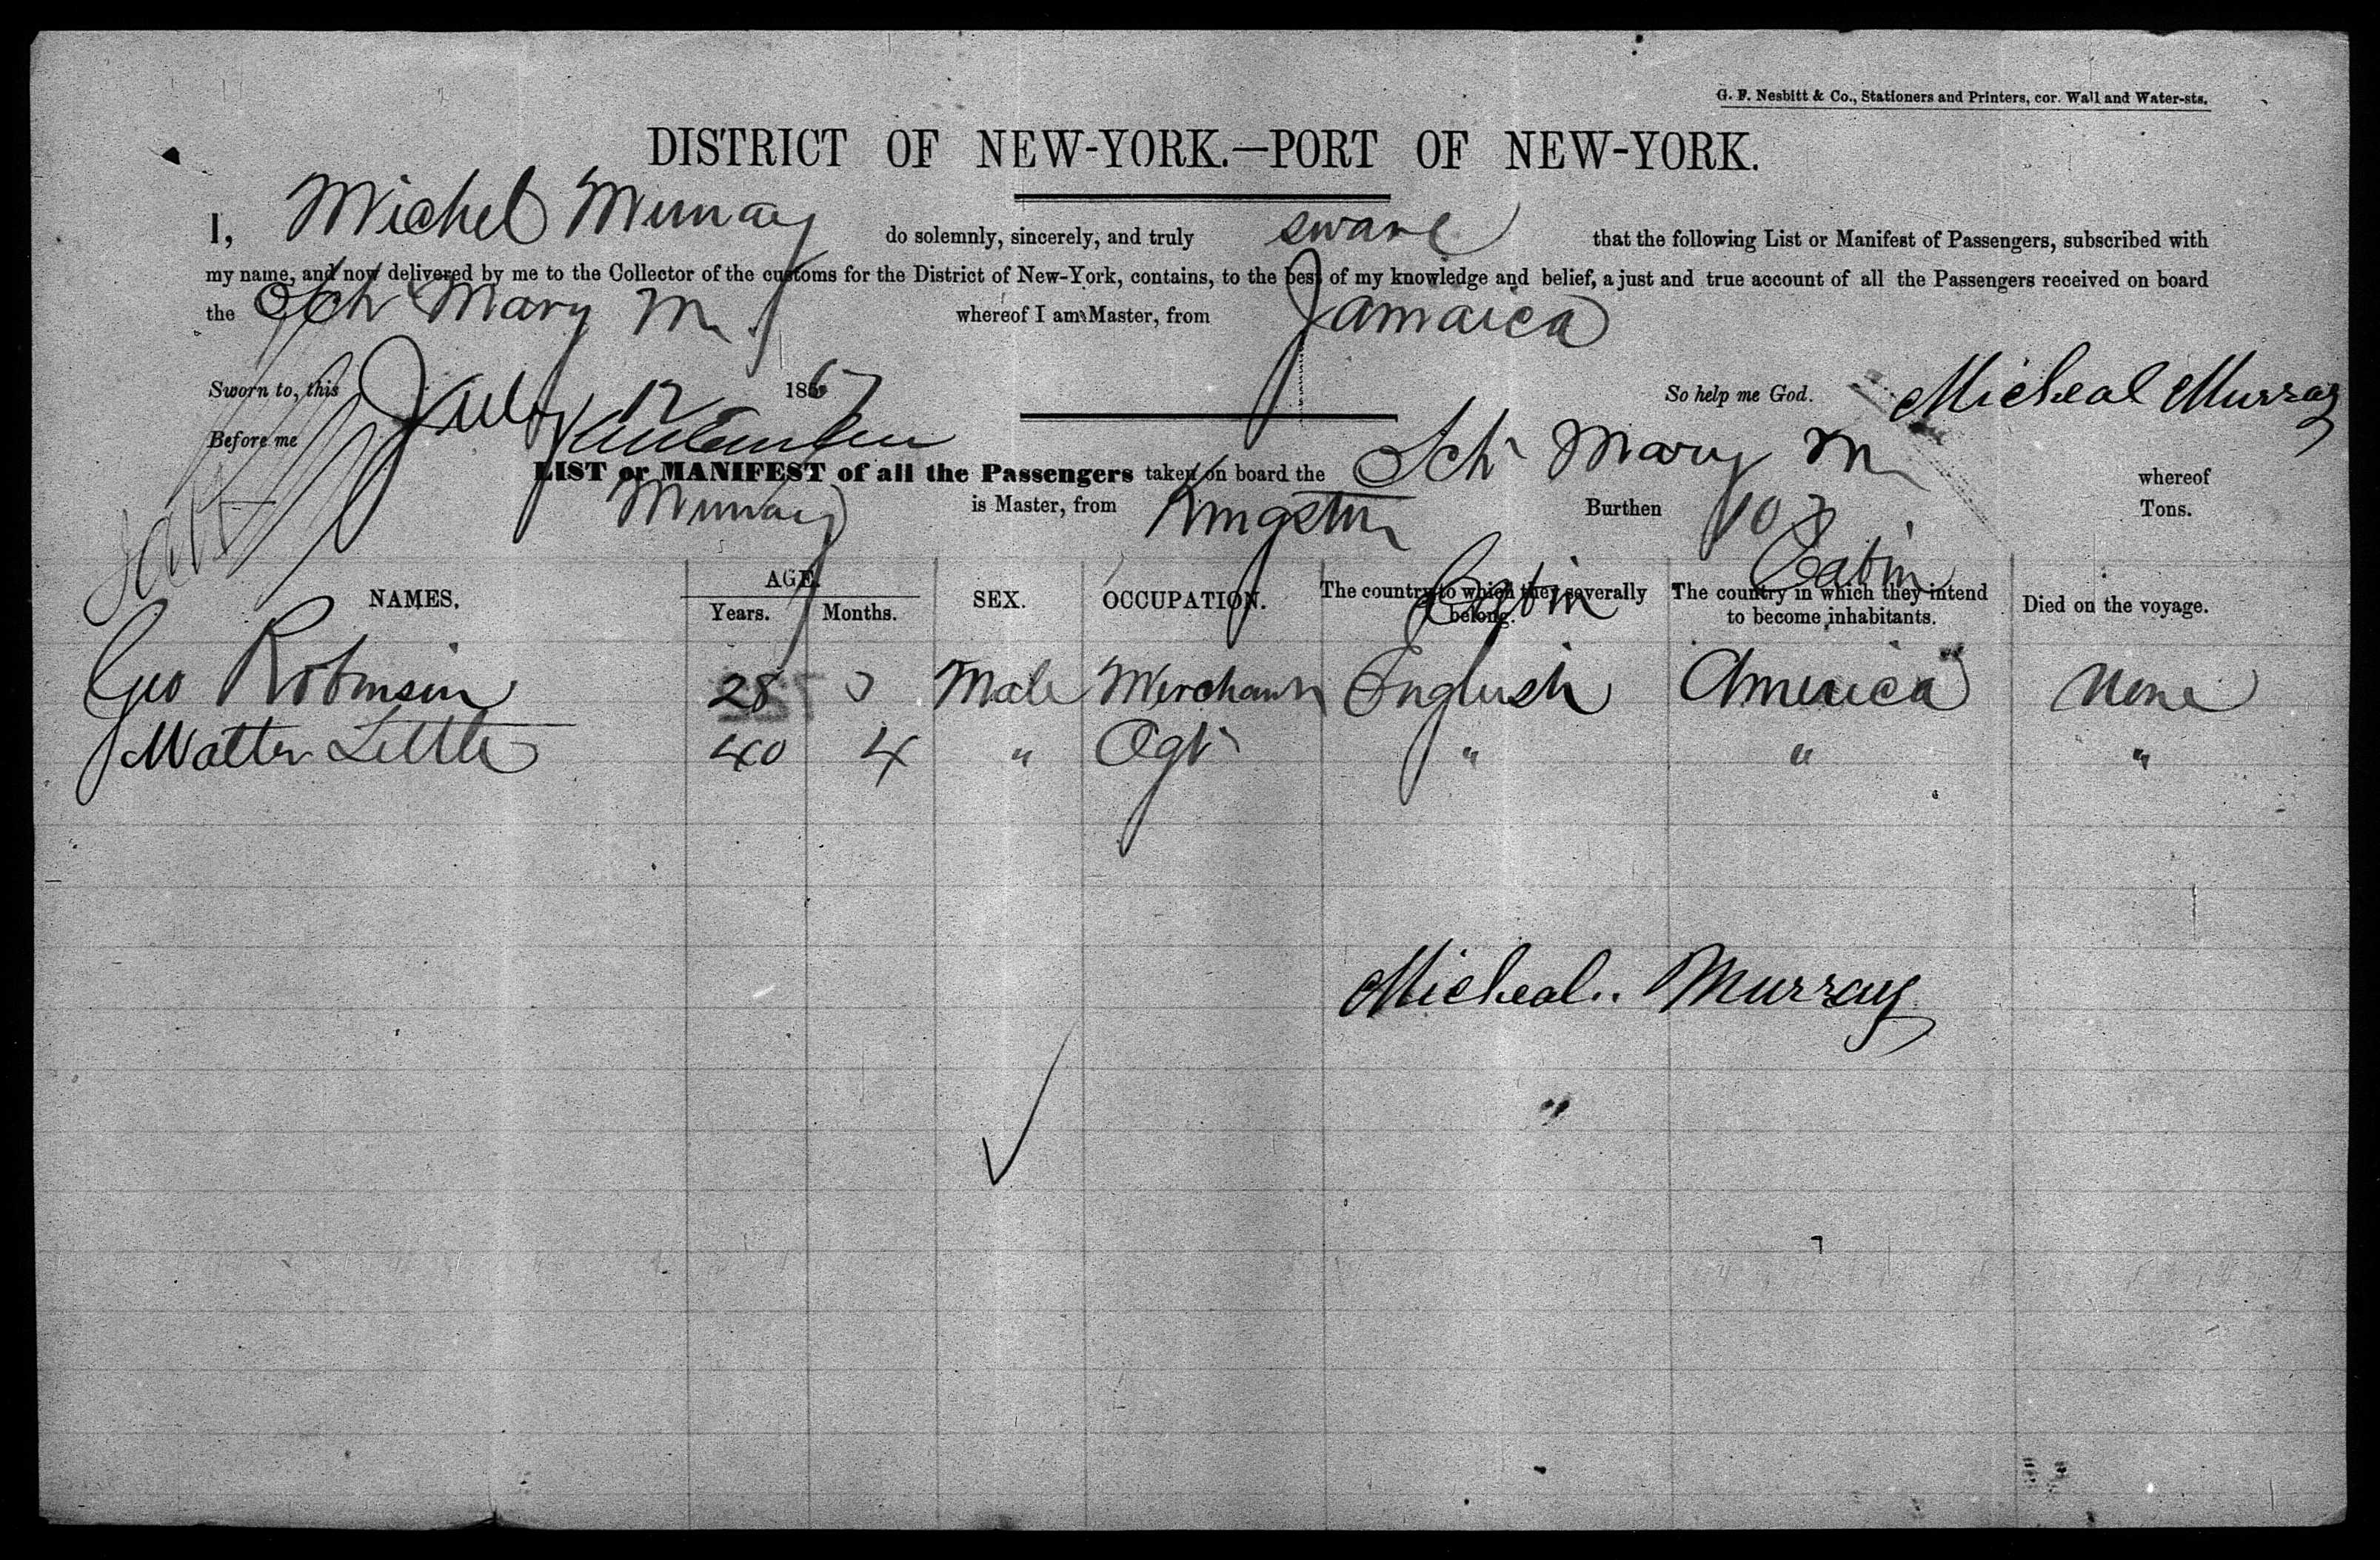 G. F. Nesbitt & Co., Stationers and Printers, cor. Wall and Water-sts.
DISTRICT OF NEW-YORK.—PORT OF NEW-YORK.
I, Michel Murray do solemnly, sincerely, and truly sware that the following List or Manifest of Passengers, subscribed with
my name, and now delivered by me to the Collector of the customs for the District of New-York, contains, to the best of my knowledge and belief, a just and true account of all the Passengers received on board
the Sch Mary M. whereof I am Master, from Jamaica
Sworn to, this July 12 1867 So help me God. Micheal Murray
Before me
LIST or MANIFEST of all the Passengers taken on board the Sch Mary M whereof
Murray is Master, from Kingston Burthen 103 Tons.
Cabin Cabin
NAMES. AGE. Years. Months. SEX. OCCUPATION. The country to which they severally belong. The country in which they intend to become inhabitants. Died on the voyage.
Geo Robinson 28 Male Merchant English America None
Walter Little 40 4 " Agt " " "
Micheal.. Murray
"